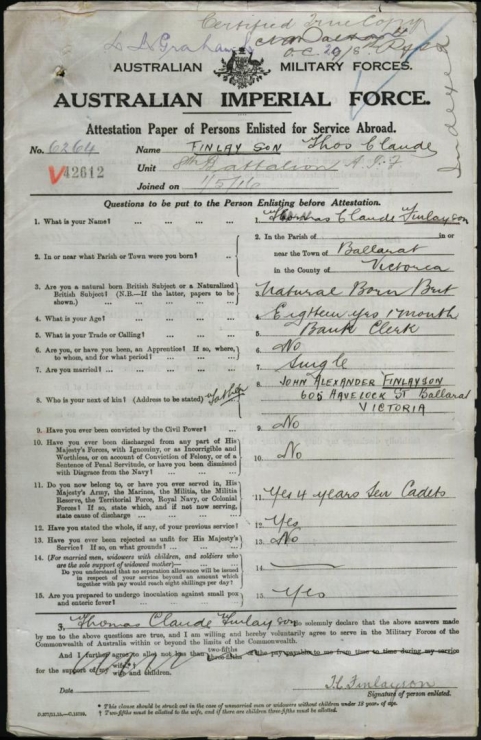 Certified True Copy
O.C. 20/8th
Indexed
AUSTRALIAN MILITARY FORCES.
AUSTRALIAN IMPERIAL FORCE.
Attestation Paper of Persons Enlisted for Service Abroad.
No. 6264 Name FINLAYSON Thos Claude
V42612 Unit 8th Battalion A.I.F
Joined on 1/5/16
Questions to be put to the Person Enlisting before Attestation.
1. What is your Name? ... ... ... 1. Thomas Claude Finlayson
2. In or near what Parish or Town were you born? ... 2. In the Parish of in or
near the Town of Ballarat
in the County of Victoria
3. Are you a natural born British Subject or a Naturalized
British Subject? (N.B.—If the latter, papers to be
shown.) ... ... ... 3. Natural Born Brit
4. What is your Age? ... ... ... 4. Eighteen yrs 1 month
5. What is your Trade or Calling? ... ... 5. Bank Clerk
6. Are you, or have you been, an Apprentice? If so, where,
to whom, and for what period? ... ... 6. No
7. Are you married? ... ... ... 7. Single
8. Who is your next of kin? (Address to be stated) Father 8. JOHN ALEXANDER FINLAYSON
605 HAVELOCK ST Ballarat
VICTORIA
9. Have you ever been convicted by the Civil Power? ... 9. No
10. Have you ever been discharged from any part of His
Majesty's Forces, with Ignominy, or as Incorrigible and
Worthless, or on account of Conviction of Felony, or of a
Sentence of Penal Servitude, or have you been dismissed
with Disgrace from the Navy? ... ... 10. No
11. Do you now belong to, or have you ever served in, His
Majesty's Army, the Marines, the Militia, the Militia
Reserve, the Territorial Force, Royal Navy, or Colonial
Forces? If so, state which, and if not now serving,
state cause of discharge ... ... 11. Yes 4 years Sen Cadets
12. Have you stated the whole, if any, of your previous service? 12. Yes
13. Have you ever been rejected as unfit for His Majesty's
Service? If so, on what grounds? ... ... 13. No
14. (For married men, widowers with children, and soldiers who
are the sole support of widowed mother)—
Do you understand that no separation allowance will be issued
in respect of your service beyond an amount which
together with pay would reach eight shillings per day? 14.
15. Are you prepared to undergo inoculation against small pox
and enteric fever? ... ... ... 15. Yes
I, Thomas Claude Finlayson do solemnly declare that the above answers made
by me to the above questions are true, and I am willing and hereby voluntarily agree to serve in the Military Forces of the
Commonwealth of Australia within or beyond the limits of the Commonwealth.
And I further agree to allot not less than two-fifths three-fifths of the pay payable to me from time to time during my service
for the support of my wife and children.
Date T.C. Finlayson
Signature of person enlisted.
* This clause should be struck out in the case of unmarried men or widowers without children under 18 years of age.
† Two-fifths must be allotted to the wife, and if there are children three-fifths must be allotted.